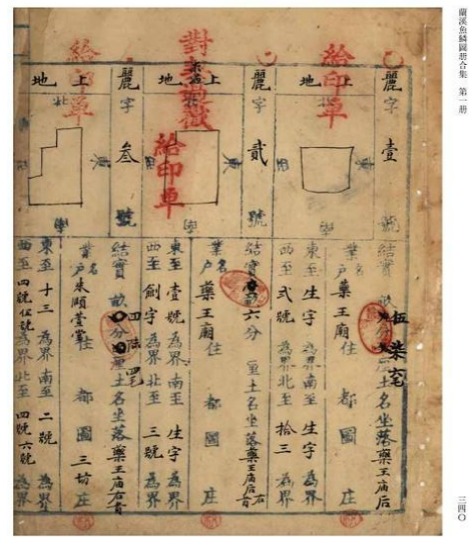 蘭溪魚鱗圖册合集 第一册
三四〇
麗字壹號
上地
給印單
北
東
學
結實 畝 分 厘土名坐落藥王廟后
伍柒毛
業戶名藥王廟住 都 圖 庄
東至生字為界南至生字為界
西至弍號為界北至拾三為界
麗字貳號
上地
給印單
東
學
結實 畝六分 厘土名坐落藥王廟后右首
業戶名藥王廟住 都 圖 庄
東至壹號為界南至生字為界
西至劍字為界北至三號為界
麗字叁號
上地
給印單
北
東
學
結實 畝 分 厘土名坐落藥王廟右首
四厘四毛
業戶名朱頤萱堂住 都 圖三坊庄
東至十三為界南至二號為界
西至四號伍號為界北至四號六號為界